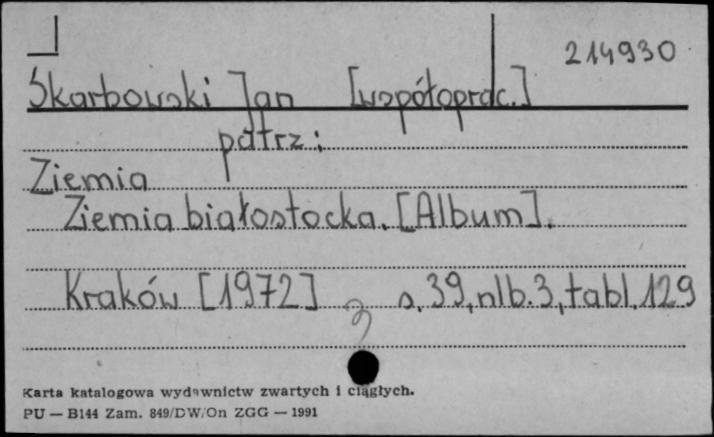 214930
Skarbowski Jan [współoprac.]
patrz:
Ziemia
Ziemia białostocka. [Album].
Kraków [1972] s. 39, nlb. 3, tabl. 129
Karta katalogowa wydawnictw zwartych i ciągłych.
PU — B144 Zam. 849/DW/On ZGG — 1991